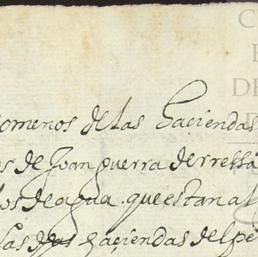 omenos de las haciendas
os de Joan guerra de rressa
los de agua que estan al
las haciendas del pe